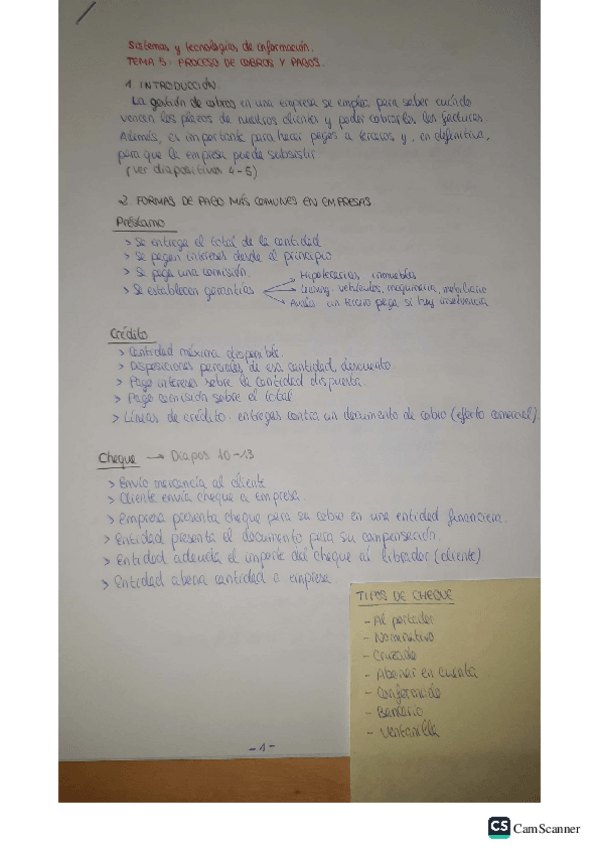 Sistemas y tecnologías de información.
TEMA 5: PROCESO DE COBROS Y PAGOS.
1. INTRODUCCIÓN.
La gestión de cobros en una empresa se emplea para saber cuándo
vencen los plazos de nuestros clientes y poder cobrarles las facturas.
Además, es importante para hacer pagos a terceros y, en definitiva,
para que la empresa pueda subsistir
(ver diapositivas 4-5)
2. FORMAS DE PAGO MÁS COMUNES EN EMPRESAS
Préstamo
> Se entrega el total de la cantidad
> Se pagan intereses desde el principio
> Se paga una comisión.
> Se establecen garantías
Hipotecarias, inmuebles
Leasing: vehículos, maquinaria, mobiliario
Avales: un tercero paga si hay insolvencia
Crédito
> Cantidad máxima disponible.
> Disposiciones parciales de esa cantidad, descuento
> Pago intereses sobre la cantidad dispuesta.
> Pago comisión sobre el total
> Líneas de crédito: entregas contra un documento de cobro (efecto comercial).
Cheque → Diapos 10-13
> Envío mercancía al cliente
> Cliente envía cheque a empresa.
> Empresa presenta cheque para su cobro en una entidad financiera.
> Entidad presenta el documento para su compensación.
> Entidad adeuda el importe del cheque al librador (cliente)
> Entidad abona cantidad a empresa
TIPOS DE CHEQUE
- Al portador
- Nominativo
- Cruzado
- Abonar en cuenta
- Conformado
- Bancario
- Ventanilla
-1-
CS CamScanner